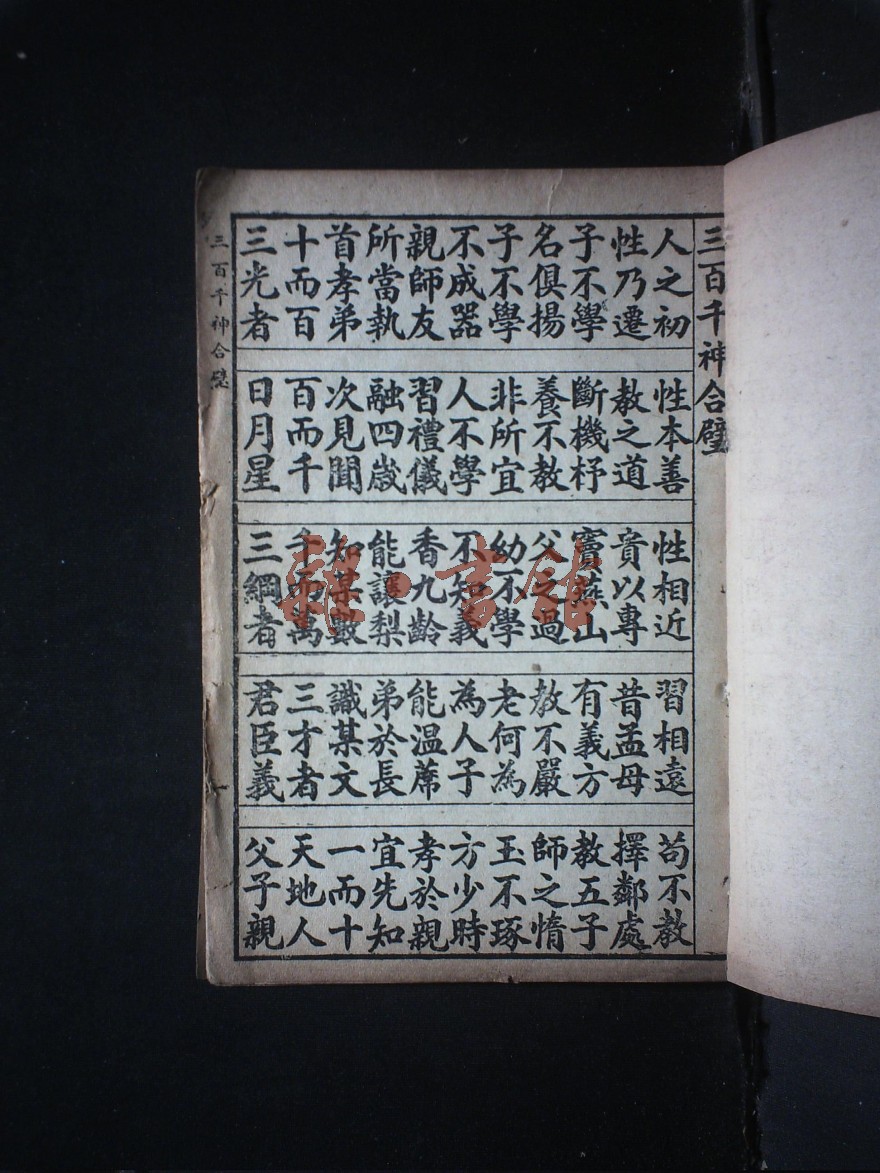 三百千神合璧
人之初 性本善 性相近 習相遠 苟不教
性乃遷 教之道 貴以專 昔孟母 擇鄰處
子不學 斷機杼 竇燕山 有義方 教五子
名俱揚 養不教 父之過 教不嚴 師之惰
子不學 非所宜 幼不學 老何為 玉不琢
不成器 人不學 不知義 為人子 方少時
親師友 習禮儀 香九齡 能溫蓆 孝於親
所當執 融四歲 能讓梨 弟於長 宜先知
首孝弟 次見聞 知某數 識某文 一而十
十而百 百而千 千而萬 三才者 天地人
三光者 日月星 三綱者 君臣義 父子親
三百千神合璧
雜·書館